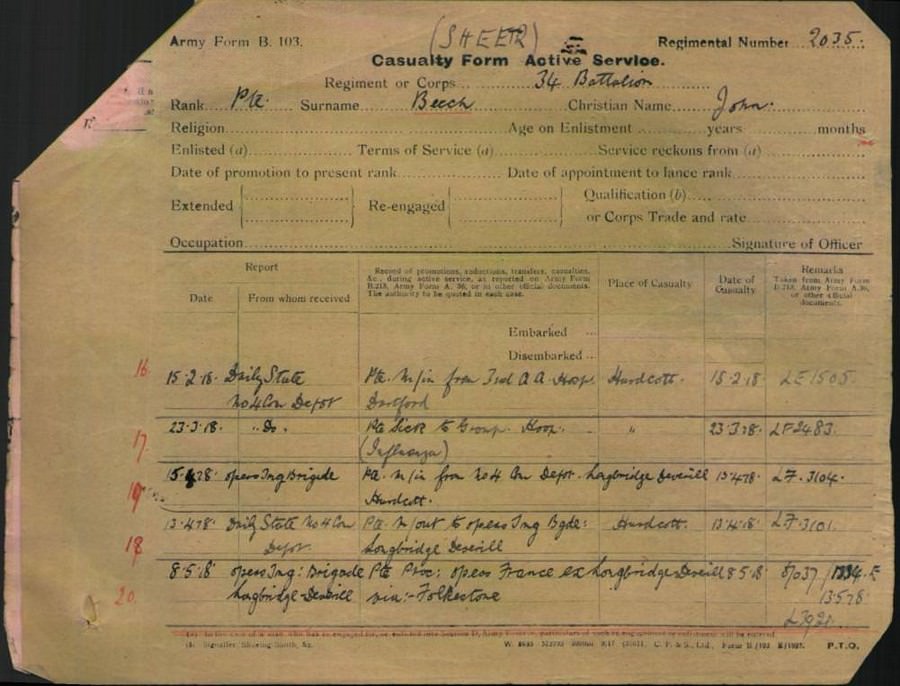 (SHEET 2)
Army Form B. 103.
Regimental Number 2035.
Casualty Form Active Service.
Regiment or Corps 34 Battalion
Rank Pte. Surname Beech Christian Name John.
Religion Age on Enlistment years months
Enlisted (a) Terms of Service (a) Service reckons from (a)
Date of promotion to present rank Date of appointment to lance rank
Extended Re-engaged Qualification (b)
or Corps Trade and rate
Occupation Signature of Officer
Report
Date From whom received
Record of promotions, reductions, transfers, casualties,
&c., during active service, as reported on Army Form
B.213, Army Form A. 36, or in other official documents.
The authority to be quoted in each case.
Place of Casualty
Date of
Casualty
Remarks
Taken from Army Form
B.213, Army Form A.36,
or other official
documents.
Embarked
Disembarked
16 15.2.18. Daily State Pte. M/in from 3rd A A Hosp. Hurdcott. 15.2.18. LE1505.
No 4 Con Depot Dartford
17 23.3.18. "Do. Pte Sick to Group. Hosp. " 23.3.18. LF2483.
(Influenza)
19 15.4.18 opeas Tng Brigade Pte. M/in from No 4 Con Depot. Longbridge Deverill 13.4.18. LF.3104.
Hurdcott.
18 13.4.18. Daily State No 4 Con Pte. M/out to opeas Tng Bgde: Hurdcott. 13.4.18. LF.3101.
Depot. Longbridge Deverill
20. 8.5.18 opeas Tng: Brigade Pte Proc: opeas France ex Longbridge Deverill 8.5.18
Longbridge Deverill via:- Folkestone 13.5.18
L3921.
(b) Signaller, Shoeing-Smith, &c. P.T.O.